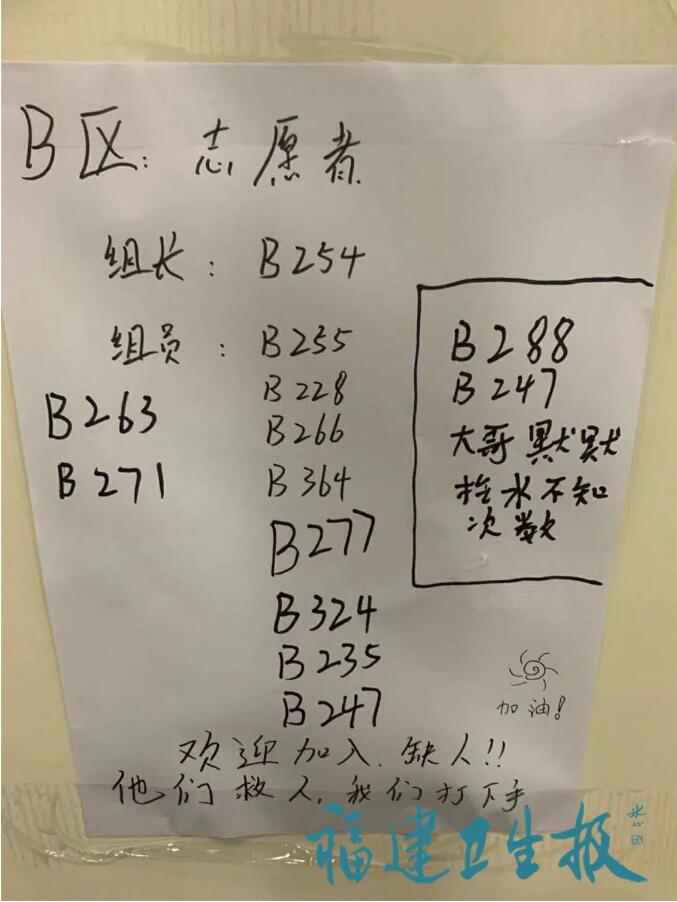 B区: 志愿者
组长: B254
组员: B255
B228
B263
B266
B271
B364
B277
B324
B235
B247
B288
B247
大哥默默
水不知
次数
加油!
欢迎加入.缺人!!
他们救人,我们打下手
福建卫生报